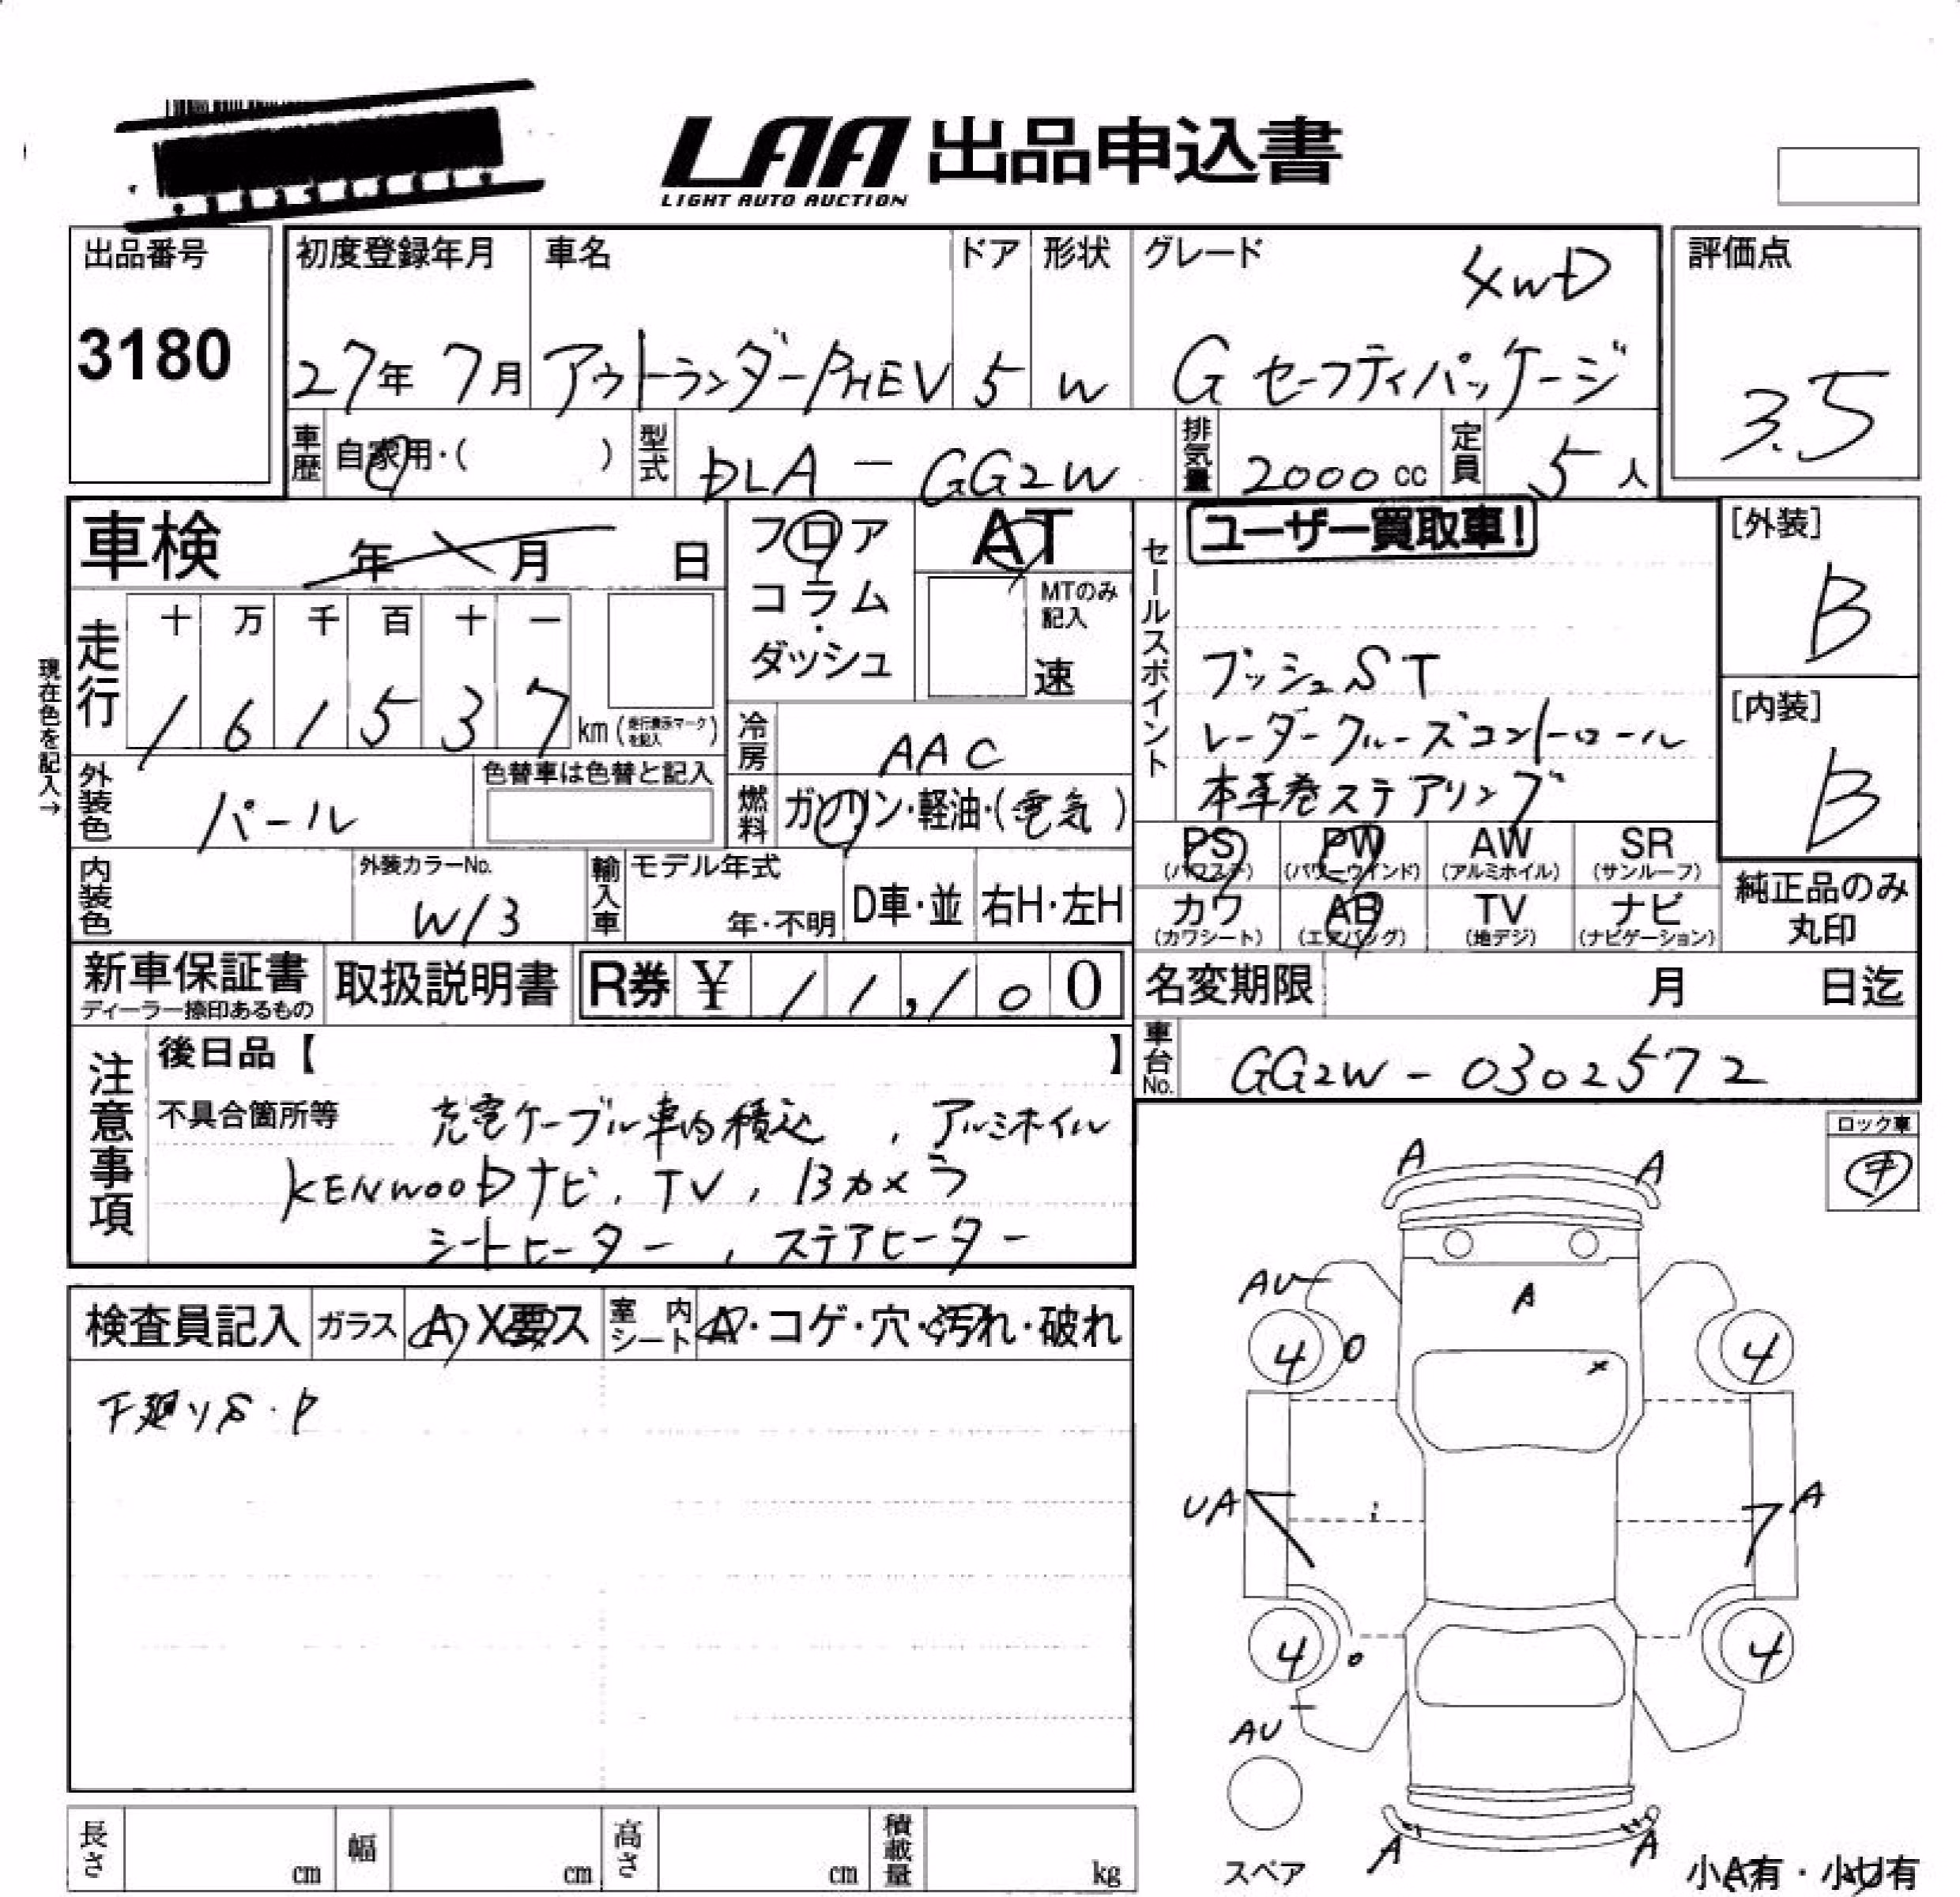 LAA 出品申込書
LIGHT AUTO AUCTION
出品番号
3180
初度登録年月
27年 7月
車名
アウトランダーPHEV
ドア
5
形状
W
グレード
4WD
G セーフティパッケージ
評価点
3.5
車歴
自家用・( )
型式
DLA - GG2W
排気量
2000 cc
定員
5 人
車検 年 月 日
フロア
コラム
・
ダッシュ
AT
MTのみ
記入
速
セールスポイント
ユーザー買取車!
プッシュST
レーダークルーズコントロール
本革巻ステアリング
[外装]
B
[内装]
B
現在色を記入→
走行
十 万 千 百 十 一
1 6 1 5 3 7 km (走行表示マークを記入)
冷房
AAC
外装色
パール
色替車は色替と記入
燃料
ガソリン・軽油・(電気)
内装色
外装カラーNo.
W13
輸入車
モデル年式
年・不明
D車・並
右H・左H
PS PW AW SR
(パワステ) (パワーウインド) (アルミホイル) (サンルーフ)
カワ AB TV ナビ
(カワシート) (エアバッグ) (地デジ) (ナビゲーション)
純正品のみ
丸印
新車保証書
ディーラー捺印あるもの
取扱説明書
R券 ¥ 11,100
名変期限 月 日迄
車台No.
GG2W - 0302572
注意事項
後日品【 】
不具合箇所等 充電ケーブル車内積込 , アルミホイル
KENWOODナビ, TV, Bカメラ
シートヒーター , ステアヒーター
ロック車
キ
検査員記入
ガラス
A X要ス
室内シート
A・コゲ・穴・汚れ・破れ
下廻りS・P
A A
AU
A
4 0 4
x
UA A
4 4
AU
A A
スペア
小A有・小U有
長さ cm
幅 cm
高さ cm
積載量 kg